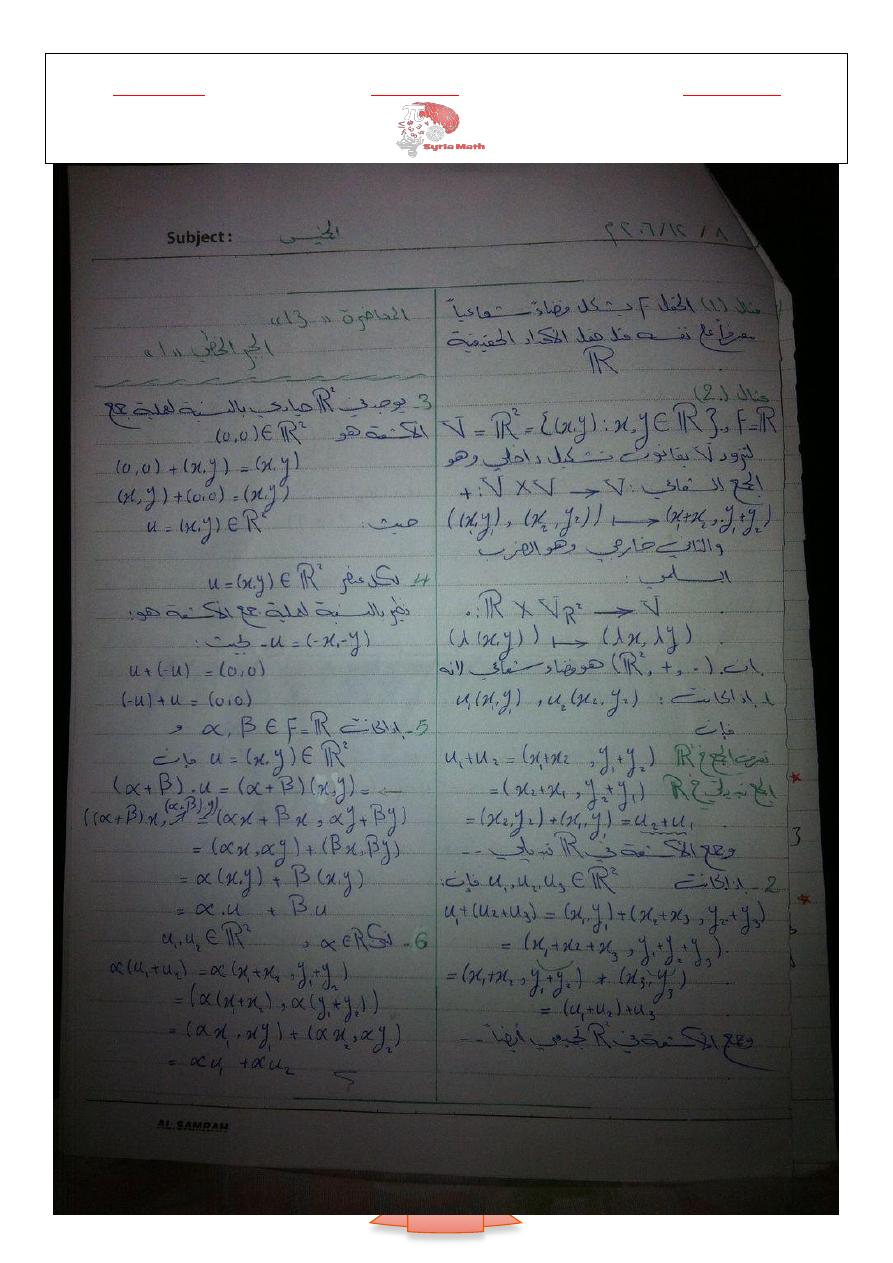 Syria Math
Subject: الخميس
٨ / ١٢ / ٢٠١٦ م
المحاضرة "13"
الجبر الخطي "1"
مثال (1) الحقل F يشكل فضاءً شعاعياً
معرفاً على نفسه مثل حقل الأعداد الحقيقية
ℝ
مثال (2)
V = ℝ² = {(x,y) : x,y ∈ ℝ}, F=ℝ
لنزود V بقانون تشكيل داخلي وهو
الجمع الشعاعي: V × V → V : +
((x₁,y₁), (x₂,y₂)) ↦ (x₁+x₂, y₁+y₂)
والثاني خارجي وهو الضرب
السلمي:
ℝ × V_ℝ² → V : .
(λ(x,y)) ↦ (λx, λy)
إن (ℝ², +, .) هو فضاء شعاعي لأنه
1. إذا كانت: u₁(x₁,y₁), u₂(x₂,y₂)
فإن
u₁+u₂ = (x₁+x₂, y₁+y₂) تعريف الجمع في ℝ²
= (x₂+x₁, y₂+y₁) الجمع تبديلي في ℝ
= (x₂,y₂)+(x₁,y₁) = u₂+u₁
وجمع الأشعة في ℝ² تبديلي --
2- إذا كانت u₁,u₂,u₃ ∈ ℝ² فإن:
u₁+(u₂+u₃) = (x₁,y₁)+(x₂+x₃, y₂+y₃)
= (x₁+x₂+x₃, y₁+y₂+y₃).
= (x₁+x₂, y₁+y₂) + (x₃,y₃)
= (u₁+u₂)+u₃
وجمع الأشعة في ℝ² تجميعي أيضاً --
3- يوجد في ℝ² حيادي بالنسبة لعملية جمع
الأشعة هو (0,0) ∈ ℝ²
(0,0)+(x,y) = (x,y)
(x,y)+(0,0) = (x,y)
حيث: u = (x,y) ∈ ℝ²
4- لكل عنصر u = (x,y) ∈ ℝ²
نظير بالنسبة لعملية جمع الأشعة هو:
-u = (-x,-y) بحيث:
u+(-u) = (0,0)
(-u)+u = (0,0)
5- إذا كانت α, β ∈ F=ℝ و
u = (x,y) ∈ ℝ² فإن
(α+β).u = (α+β)(x,y) =
((α+β)x, (α+β)y) = (αx+βx, αy+βy)
= (αx,αy)+(βx,βy)
= α(x,y) + β(x,y)
= α.u + β.u
6- لتكن α∈ℝ, u₁,u₂ ∈ ℝ²
α(u₁+u₂) = α(x₁+x₂, y₁+y₂)
= (α(x₁+x₂), α(y₁+y₂))
= (αx₁, αy₁) + (αx₂, αy₂)
= αu₁ + αu₂
AL SAMRAH